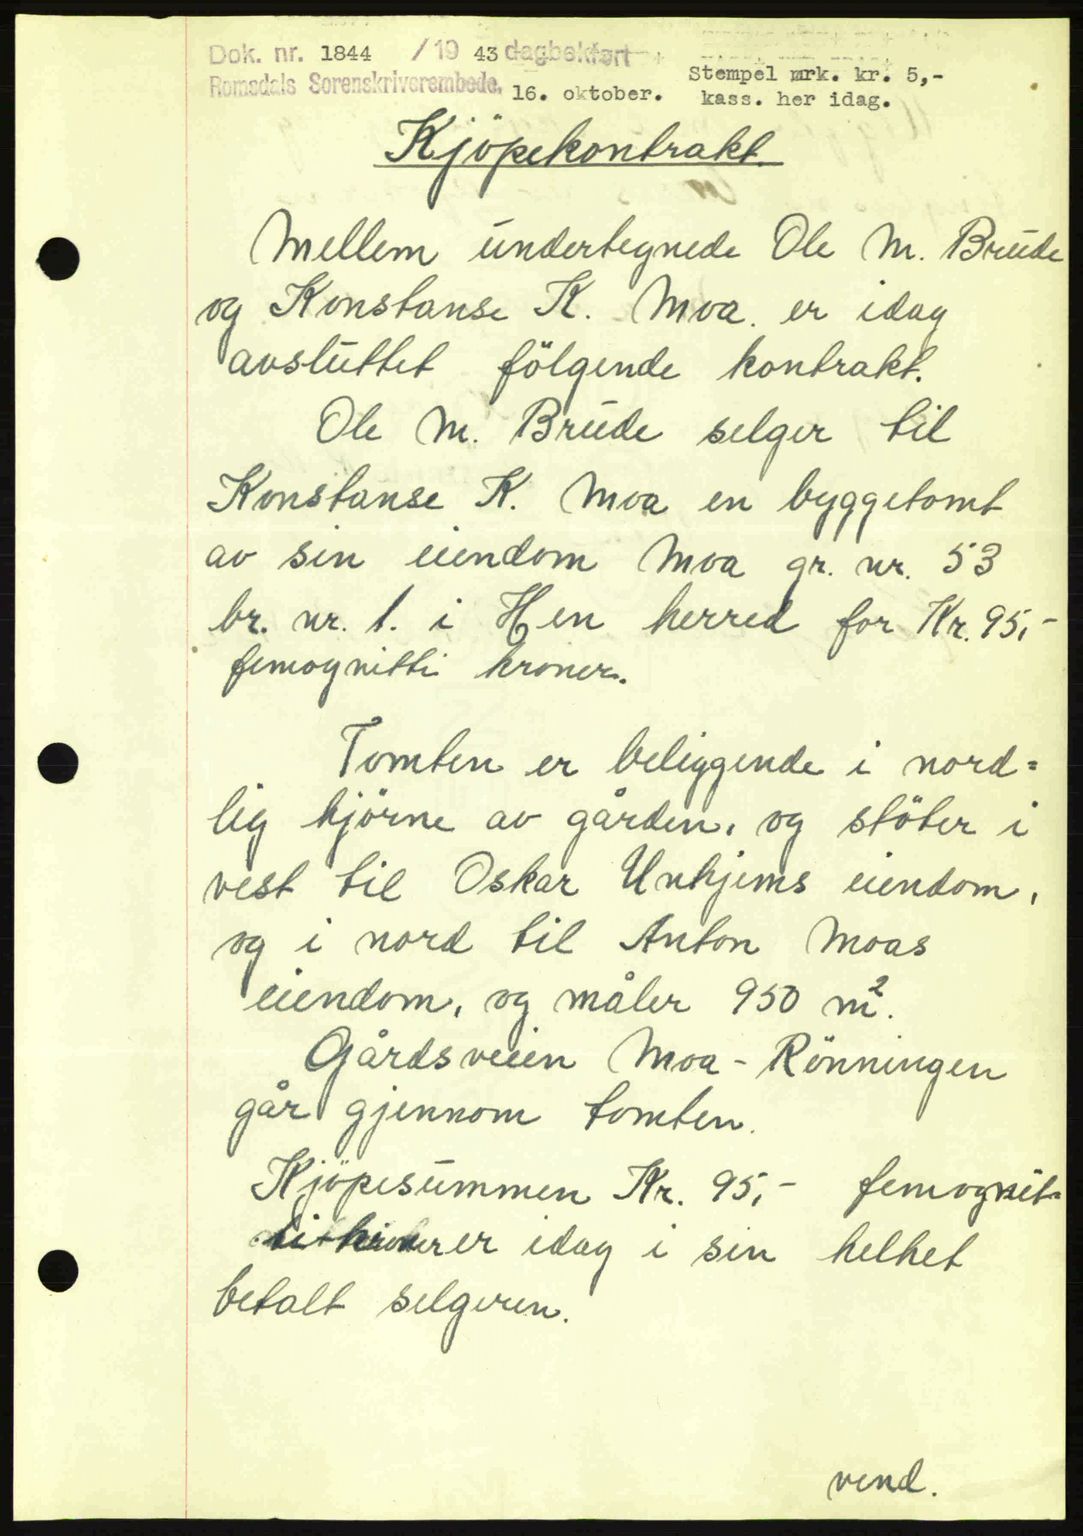 Dok. nr. 1844 / 19 43 dagbokført
Stempel mrk. kr. 5,-
Romsdals Sorenskriverembede, 16. oktober.
kass. her idag.
Kjöpekontrakt.
Mellem undertegnede Ole M. Brude
og Konstanse K. Moa. er idag
avsluttet fölgende kontrakt.
Ole M. Brude selger til
Konstanse K. Moa en byggetomt
av sin eiendom Moa gr. nr. 53
br. nr. 1. i Hen herred for Kr. 95,-
femognitti kroner.
Tomten er beliggende i nord=
lig hjörne av gården, og stöter i
vest til Oskar Unhjems eiendom,
og i nord til Anton Moas
eiendom, og måler 950 m².
Gårdsveien Moa - Rönningen
går gjennom tomten.
Kjöpesummen Kr. 95,- femognit-
ti kroner er idag i sin helhet
betalt selgeren.
vend.